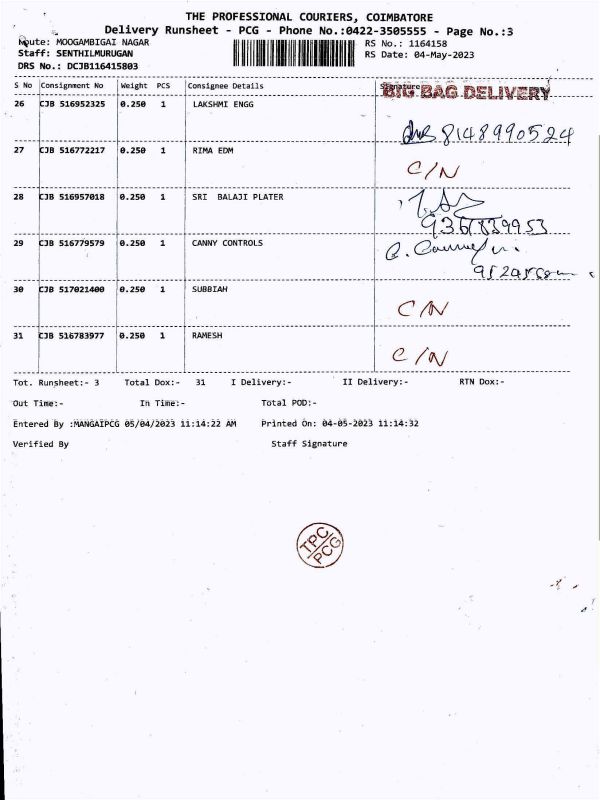 THE PROFESSIONAL COURIERS, COIMBATORE
Delivery Runsheet - PCG - Phone No.:0422-3505555 - Page No.:3
Route: MOOGAMBIGAI NAGAR RS No.: 1164158
Staff: SENTHILMURUGAN RS Date: 04-May-2023
DRS No.: DCJB116415803
S No Consignment No Weight PCS Consignee Details Signature
BIG BAG DELIVERY
26 CJB 516952325 0.250 1 LAKSHMI ENGG
8148990524
27 CJB 516772217 0.250 1 RIMA EDM
C/N
28 CJB 516957018 0.250 1 SRI BALAJI PLATER
29 CJB 516779579 0.250 1 CANNY CONTROLS
30 CJB 517021400 0.250 1 SUBBIAH
C/N
31 CJB 516783977 0.250 1 RAMESH
C/N
Tot. Runsheet:- 3 Total Dox:- 31 I Delivery:- II Delivery:- RTN Dox:-
Out Time:- In Time:- Total POD:-
Entered By :MANGAIPCG 05/04/2023 11:14:22 AM Printed On: 04-05-2023 11:14:32
Verified By Staff Signature
TPC
PCG